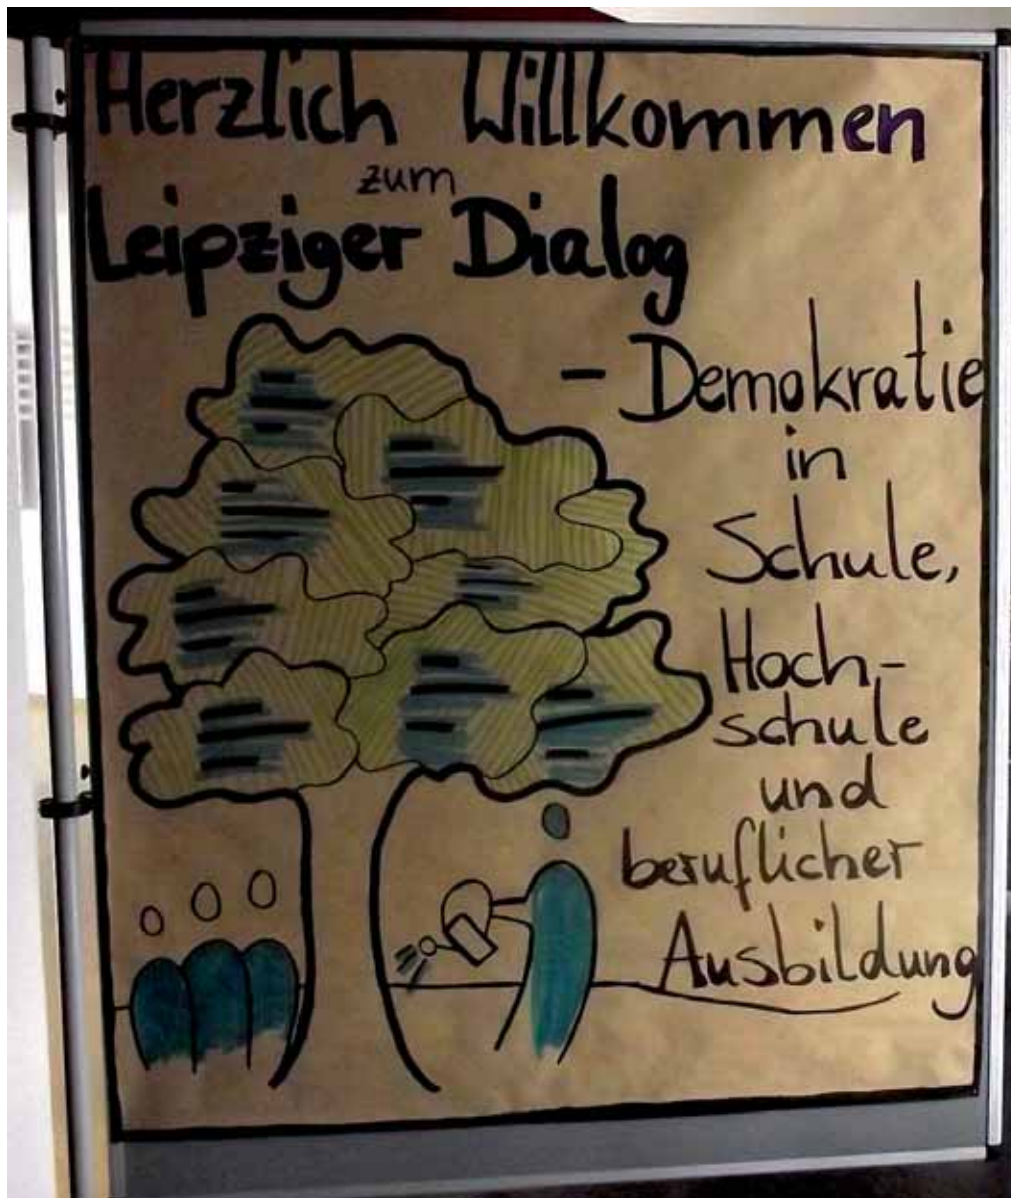 Herzlich Willkommen
zum
Leipziger Dialog
- Demokratie
in
Schule,
Hoch-
schule
und
beruflicher
Ausbildung